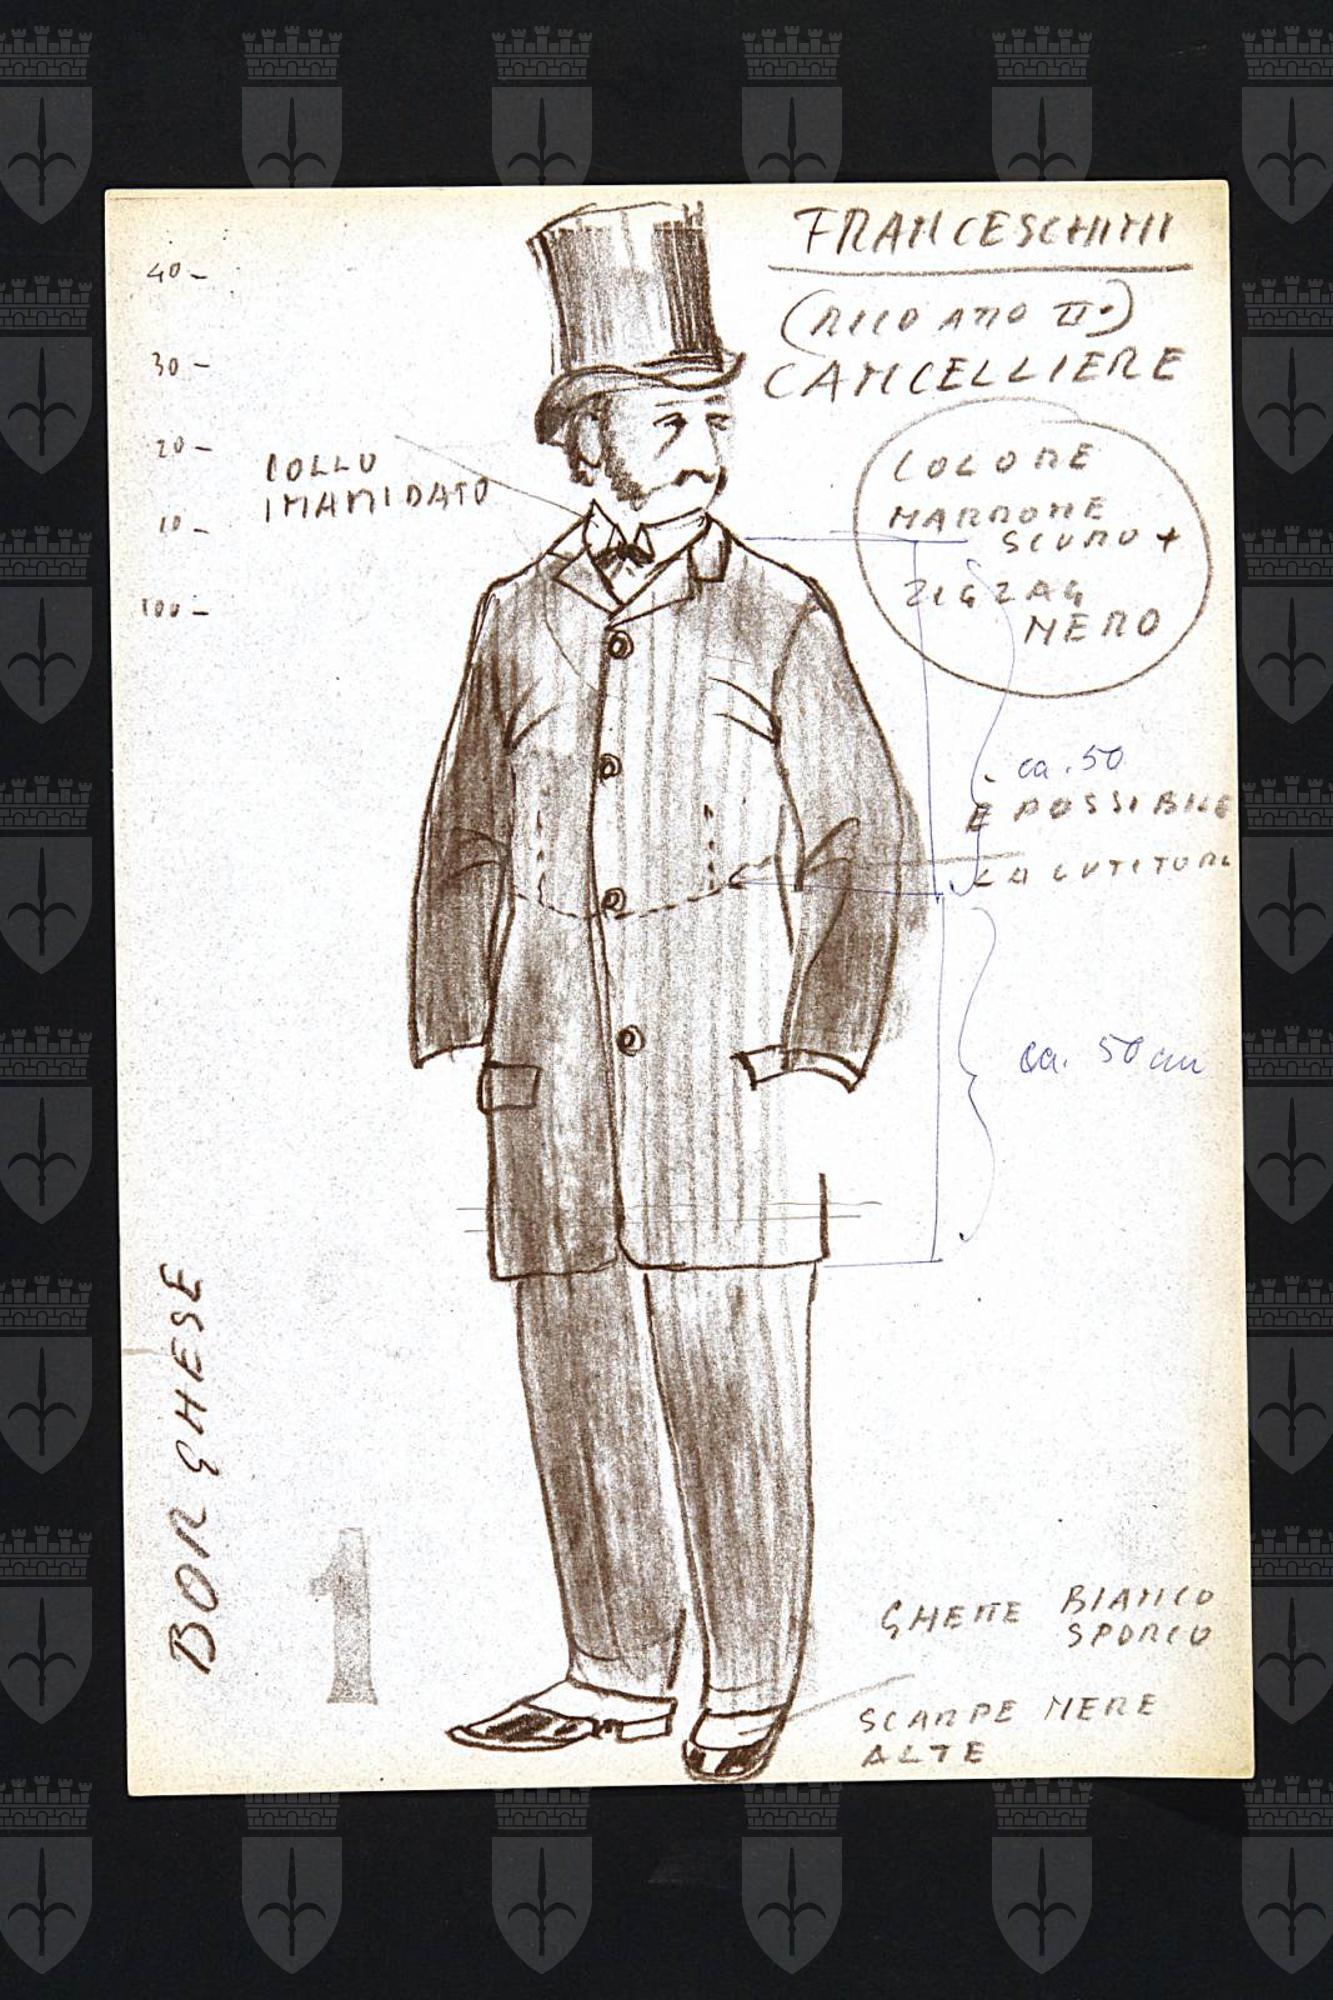 FRANCESCHINI
CANCELLIERE
40 -
30 -
20 -
10 -
100 -
COLLO
INAMIDATO
COLORE
MARRONE
SCURO +
ZIGZAG
NERO
ca. 50
È POSSIBILE
LA
ca. 50 cm
BORGHESE
1
GHETTE BIANCO
SPORCO
SCARPE NERE
ALTE